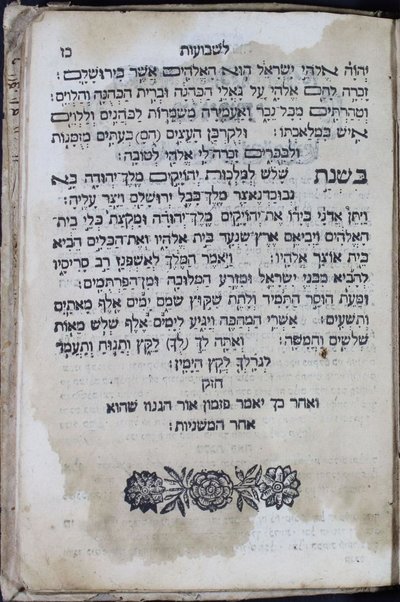 לשבועות כז
יְהוָה אֱלֹהֵי יִשְׂרָאֵל הוּא הָאֱלֹהִים אֲשֶׁר בִּירוּשָׁלָיִם :
זָכְרָה לָהֶם אֱלֹהָי עַל גָּאֳלֵי הַכְּהֻנָּה וּבְרִית הַכְּהֻנָּה וְהַלְוִיִּם :
וְטִהַרְתִּים מִכָּל נֵכָר וָאַעֲמִידָה מִשְׁמָרוֹת לַכֹּהֲנִים וְלַלְוִיִּם
אִישׁ בִּמְלַאכְתּוֹ : וּלְקֻרְבַּן הָעֵצִים (הס) בְּעִתִּים מְזֻמָּנוֹת
וְלַבִּכּוּרִים זָכְרָה לִּי אֱלֹהַי לְטוֹבָה :
בִּשְׁנַת שָׁלֹשׁ לְמַלְכוּת יְהוֹיָקִים מֶלֶךְ יְהוּדָה בָּא
נְבוּכַדְנֶאצַּר מֶלֶךְ בָּבֶל יְרוּשָׁלַםִ וַיָּצַר עָלֶיהָ :
וַיִּתֵּן אֲדֹנָי בְּיָדוֹ אֶת יְהוֹיָקִים מֶלֶךְ יְהוּדָה וּמִקְצָת כְּלֵי בֵית
הָאֱלֹהִים וַיְבִיאֵם אֶרֶץ שִׁנְעָר בֵּית אֱלֹהָיו וְאֶת הַכֵּלִים הֵבִיא
בֵּית אוֹצַר אֱלֹהָיו : וַיֹּאמֶר הַמֶּלֶךְ לְאַשְׁפְּנַז רַב סָרִיסָיו
לְהָבִיא מִבְּנֵי יִשְׂרָאֵל וּמִזֶּרַע הַמְּלוּכָה וּמִן הַפַּרְתְּמִים :
וּמֵעֵת הוּסַר הַתָּמִיד וְלָתֵת שִׁקּוּץ שֹׁמֵם יָמִים אֶלֶף מָאתַיִם
וְתִשְׁעִים : אַשְׁרֵי הַמְחַכֶּה וְיַגִּיעַ לְיָמִים אֶלֶף שְׁלֹשׁ מֵאוֹת
שְׁלֹשִׁים וַחֲמִשָּׁה : וְאַתָּה לֵךְ (לך) לַקֵּץ וְתָנוּחַ וְתַעֲמֹד
לְגֹרָלְךָ לְקֵץ הַיָּמִין :
חזק
ואחר כך יאמר פזמון אור הגנוז שהוא
אחר המשניות :